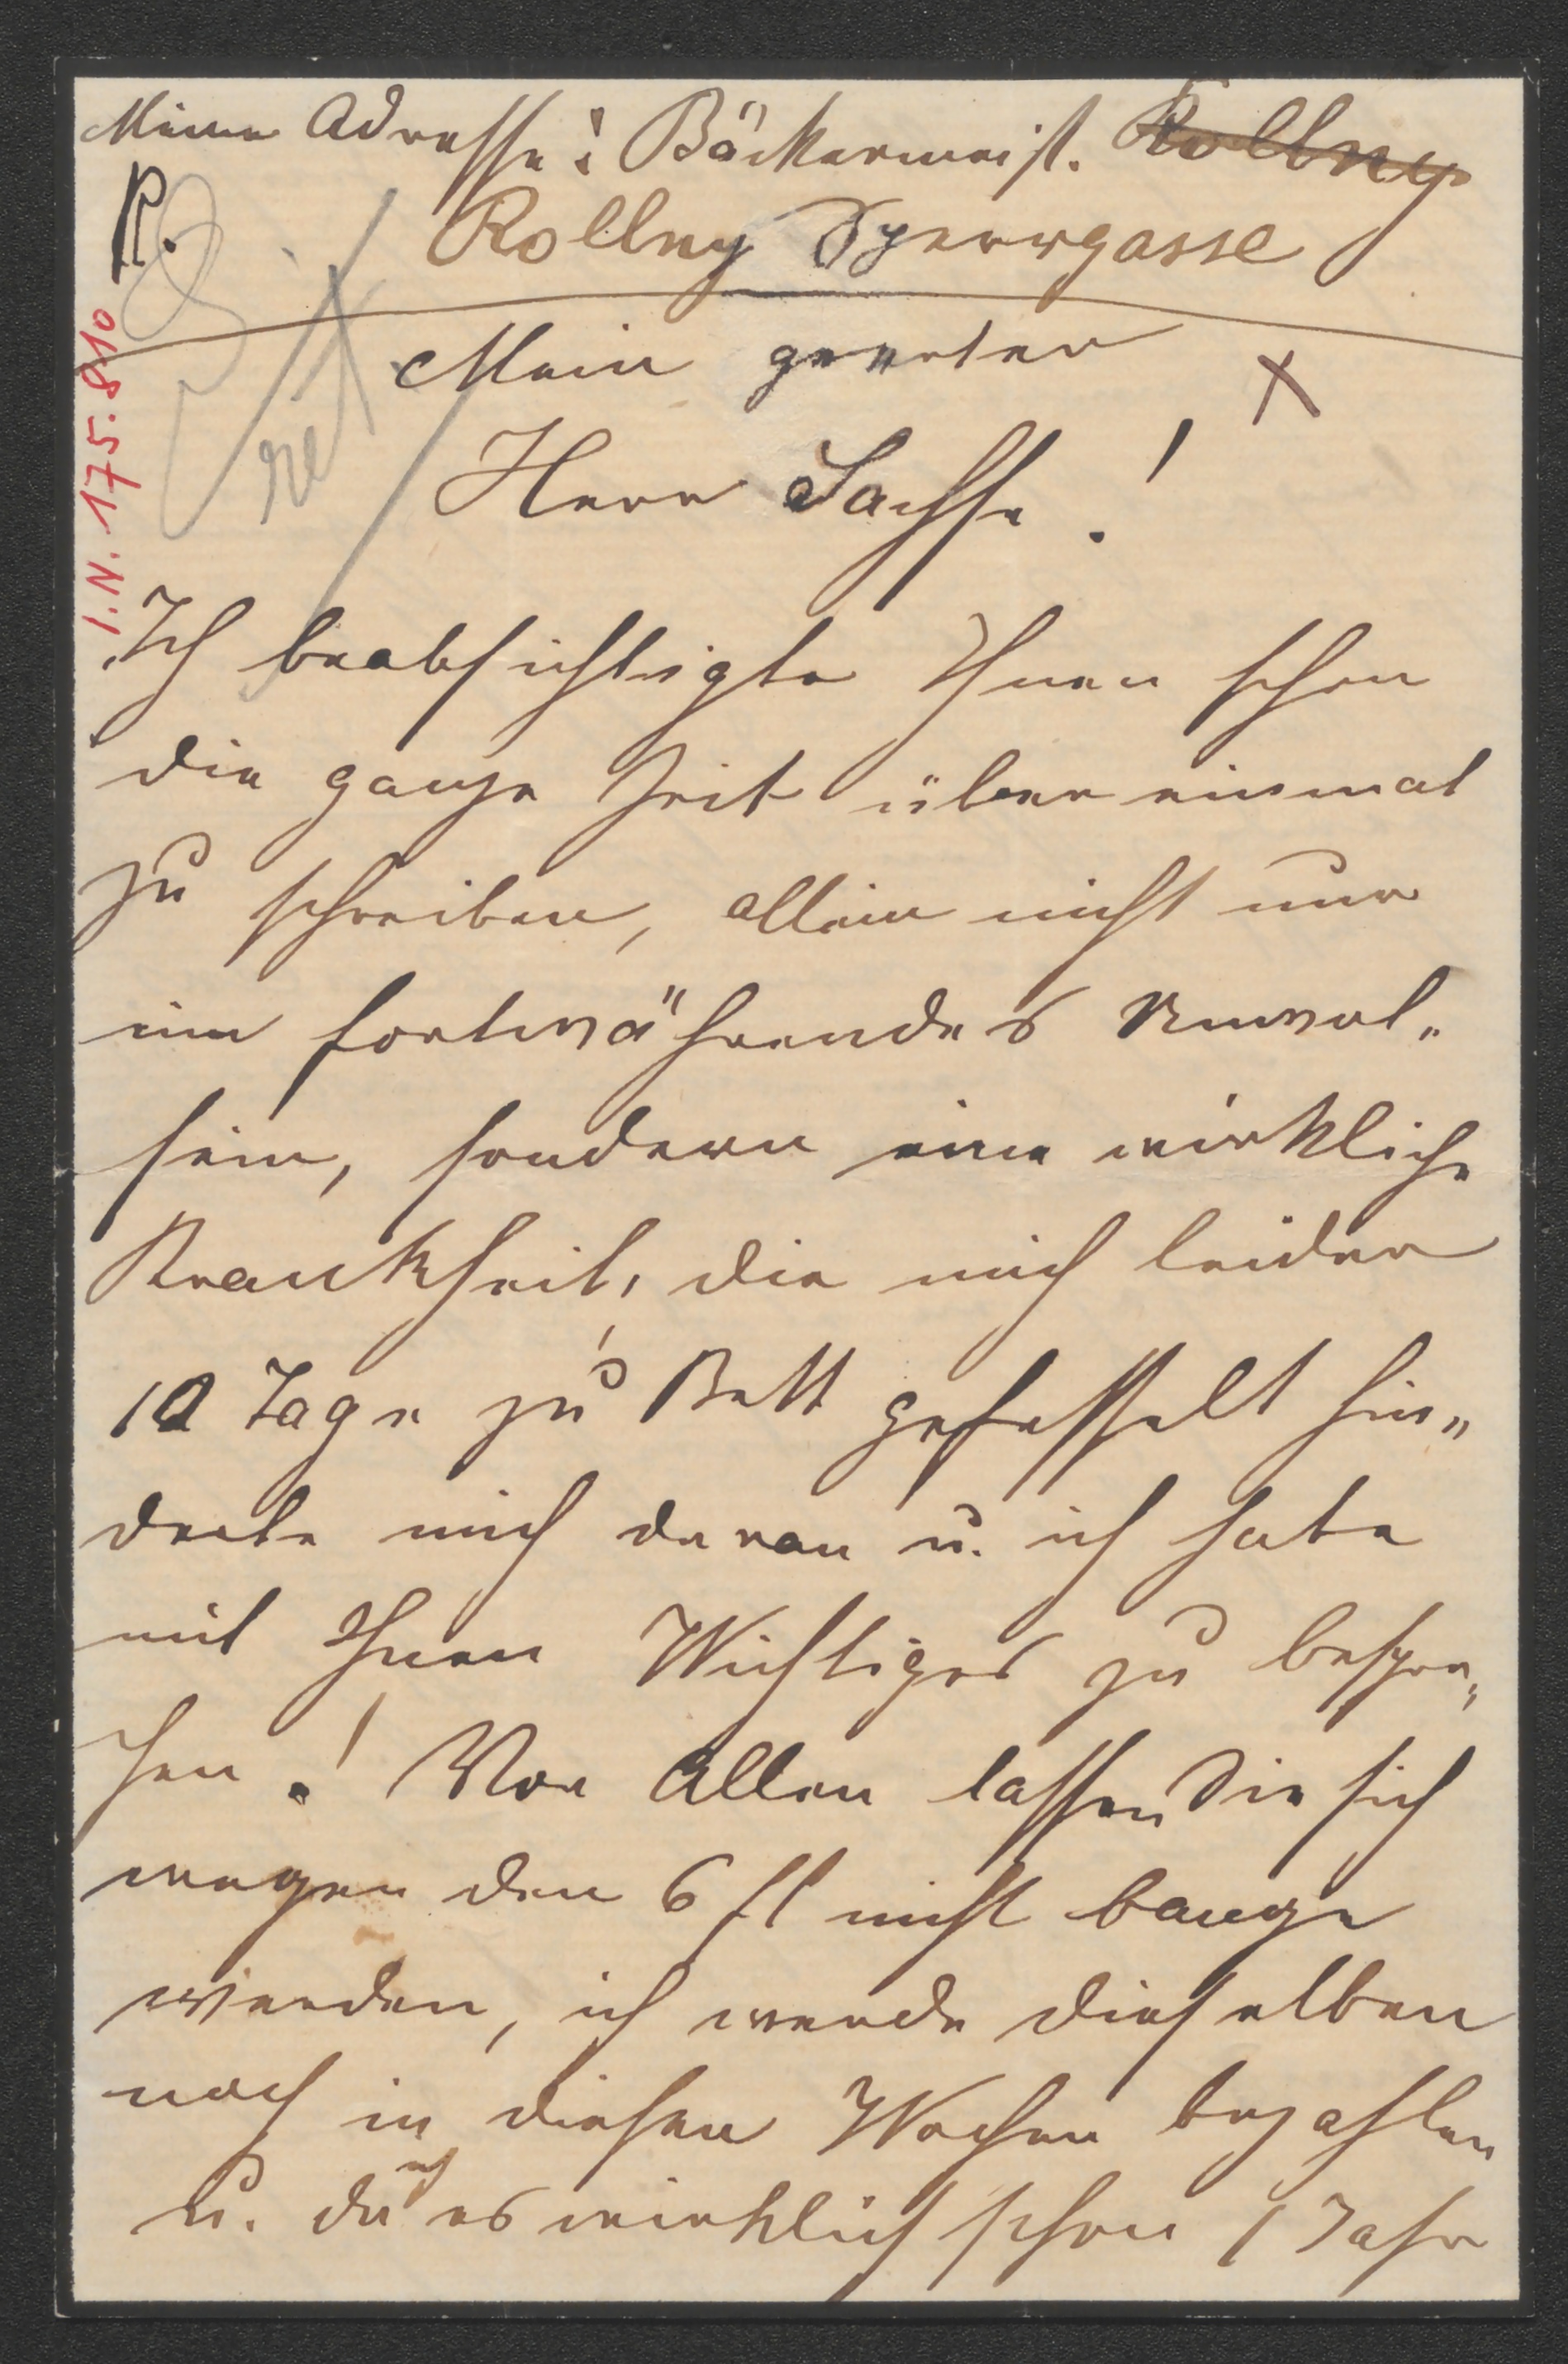 Meine Adresse: Bäckermeist. Rollny
Rollny Sperrgasse
R.
I.N. 175.810
re
Mein geerter
Herr Sachse!
Ich beabsichtigte Ihnen schon
die ganze Zeit über einmal
zu schreiben, allein nicht nur
ein fortwährendes Unwol-
sein, sondern eine wirkliche
Krankheit, die mich leider
10 Tage zu Bett gefesselt hin-
derte mich daran u. ich habe
mit Ihnen Wichtiges zu bespre-
chen! Vor Allen lassen Sie sich
wegen den 6 fl nicht bange
werden, ich werde dieselben
noch in diesen Wochen bezahlen
u. da ich es wirklich schon 1 Jahr